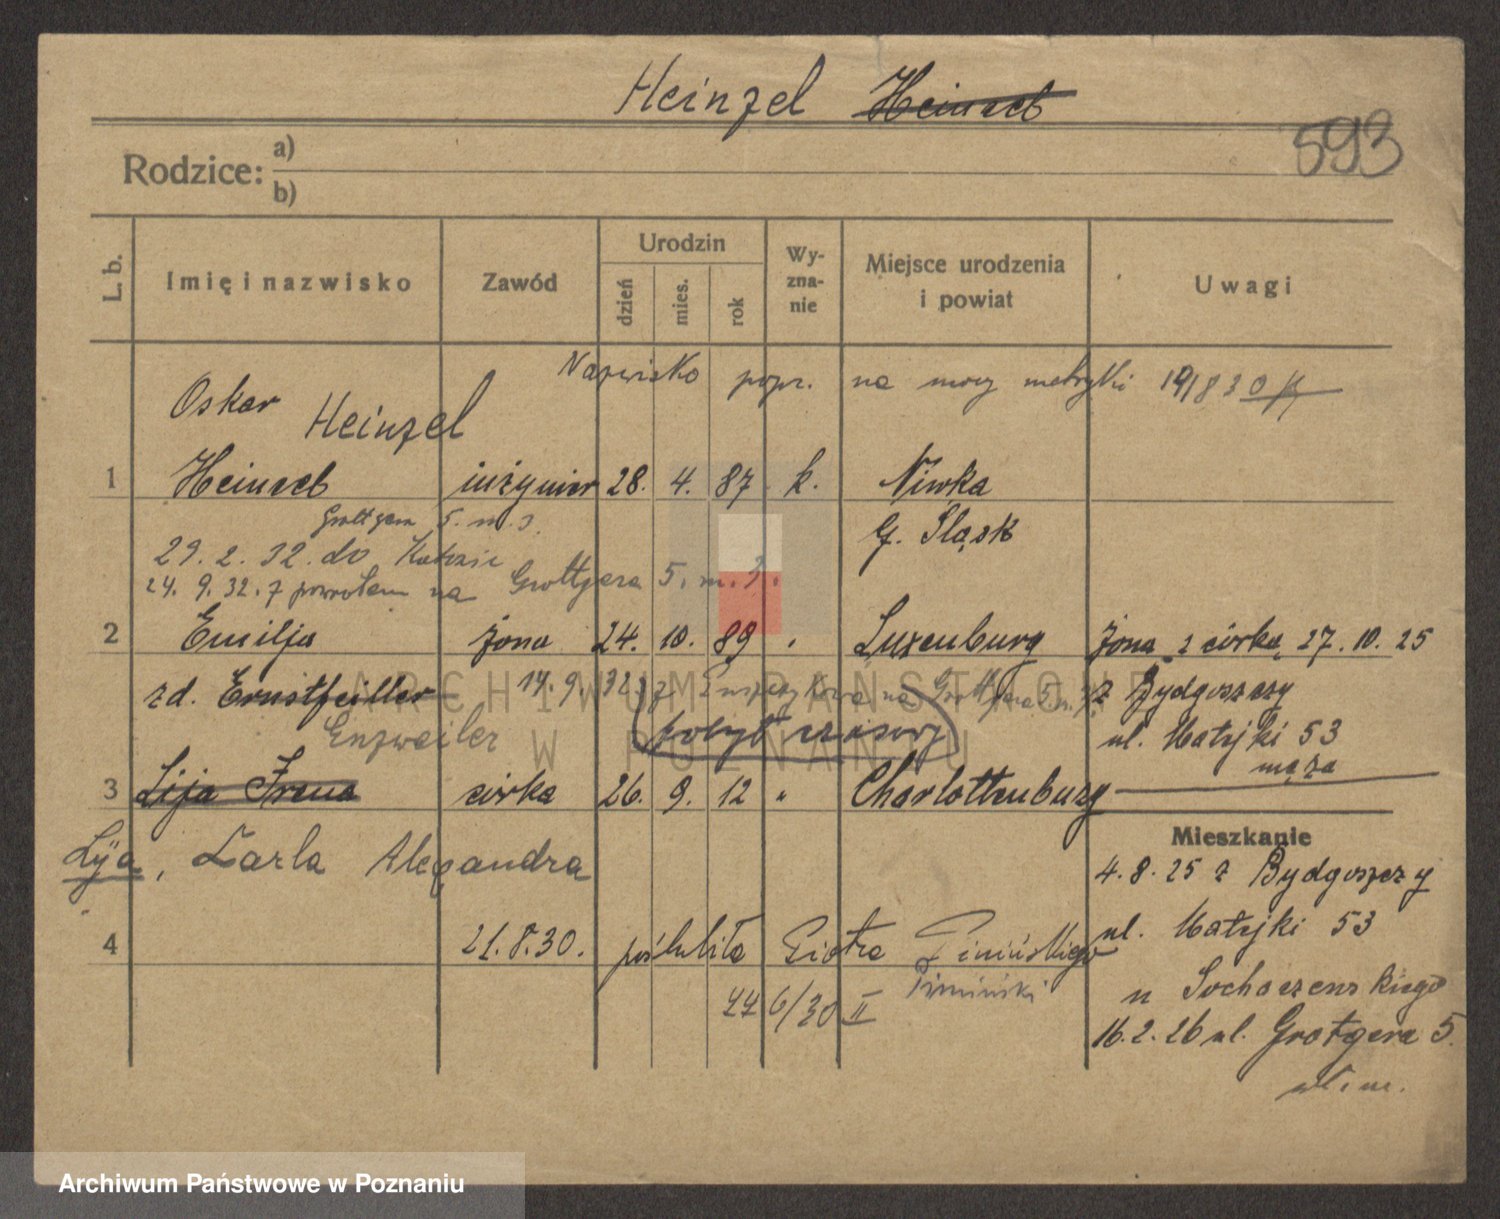 Heinzel Heinzel
593
Rodzice: a)
b)
L. b.
Imię i nazwisko
Zawód
Urodzin
dzień
mies.
rok
Wy-
zna-
nie
Miejsce urodzenia
i powiat
Uwagi
Nazwisko popr. na mocy metryki
Oskar
Heinzel
1 inżynier 28. 4. 87 k. Niwka
G. Śląsk
Grottgera 5. m. 3
29. 2. 32. do
24. 9. 32. z powrotem na Grottgera 5. m. 3.
2 Emilja żona 24. 10. 89 Luxenburg żona z córką 27. 10. 25
zd. Ernstfeiller
14. 9. 32 z na Grottgera 5 m. 3
z Bydgoszczy
Enzweiler
pobyt czasowy
ul. Matejki 53
męża
3 Lija Irena córka 26. 9. 12 " Charlottenburg
Mieszkanie
Lÿa, Carla Alexandra
4. 8. 25 z Bydgoszczy
ul. Matejki 53
4 21. 8. 30. poślubiła Piotra
u Sochaczewskiego
6/30 II
16. 2. 26 ul. Grotgera 5.
ARCHIWUM PAŃSTWOWE
W POZNANIU
Archiwum Państwowe w Poznaniu